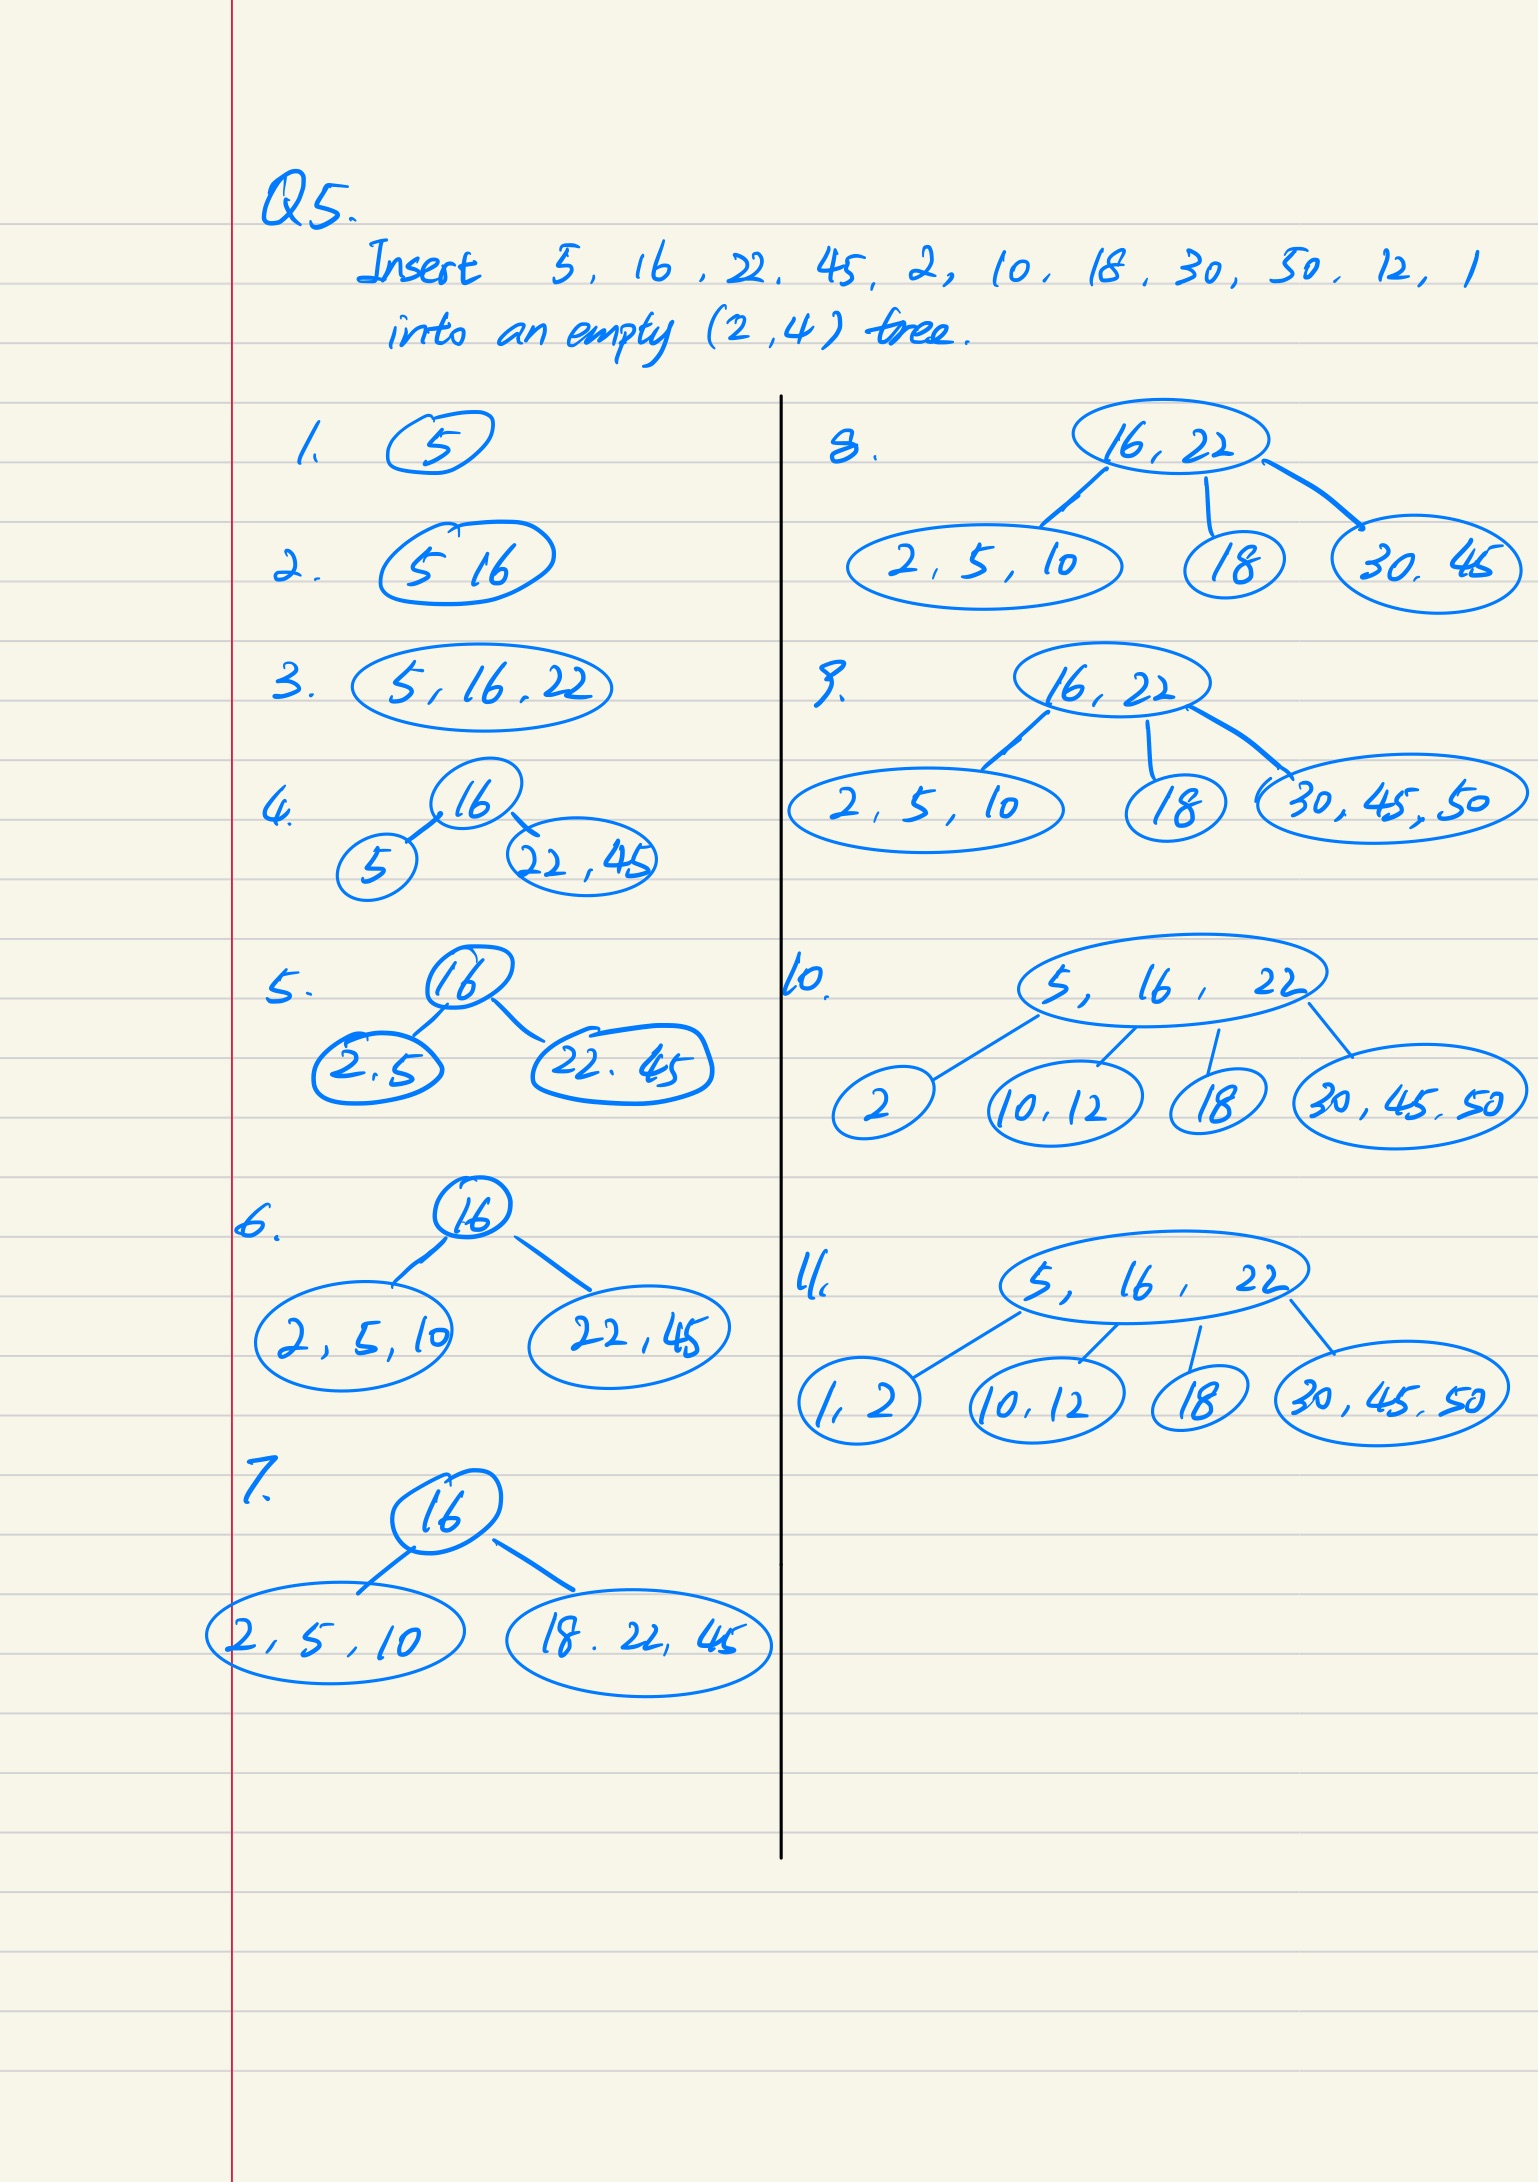 Q5.
Insert 5, 16, 22. 45, 2, 10. 18, 30, 50. 12, 1
into an empty (2,4) tree.
1. 5
2. 5 16
3. 5, 16, 22
4. 16
5 22, 45
5. 16
2.5 22. 45
6. 16
2, 5, 10 22, 45
7. 16
2, 5, 10 18. 22, 45
8. 16, 22
2, 5, 10 18 30. 45
9. 16, 22
2, 5, 10 18 30, 45, 50
10. 5, 16, 22
2 10, 12 18 30, 45. 50
11. 5, 16, 22
1, 2 10, 12 18 30, 45. 50